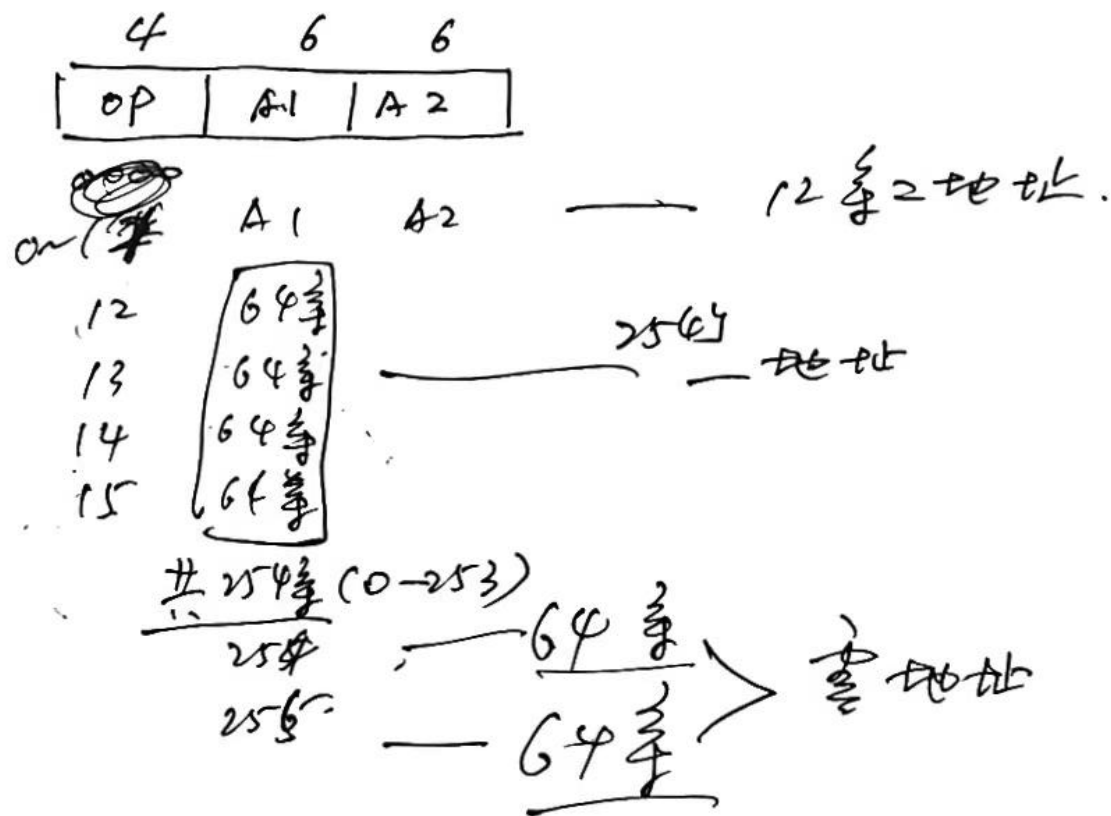 4 6 6
OP A1 A2
A1 A2 — 12条2地址.
12 64条
13 64条 — 254条 一地址
14 64条
15 64条
共254条(0-253)
254 — 64条
255 — 64条 零地址